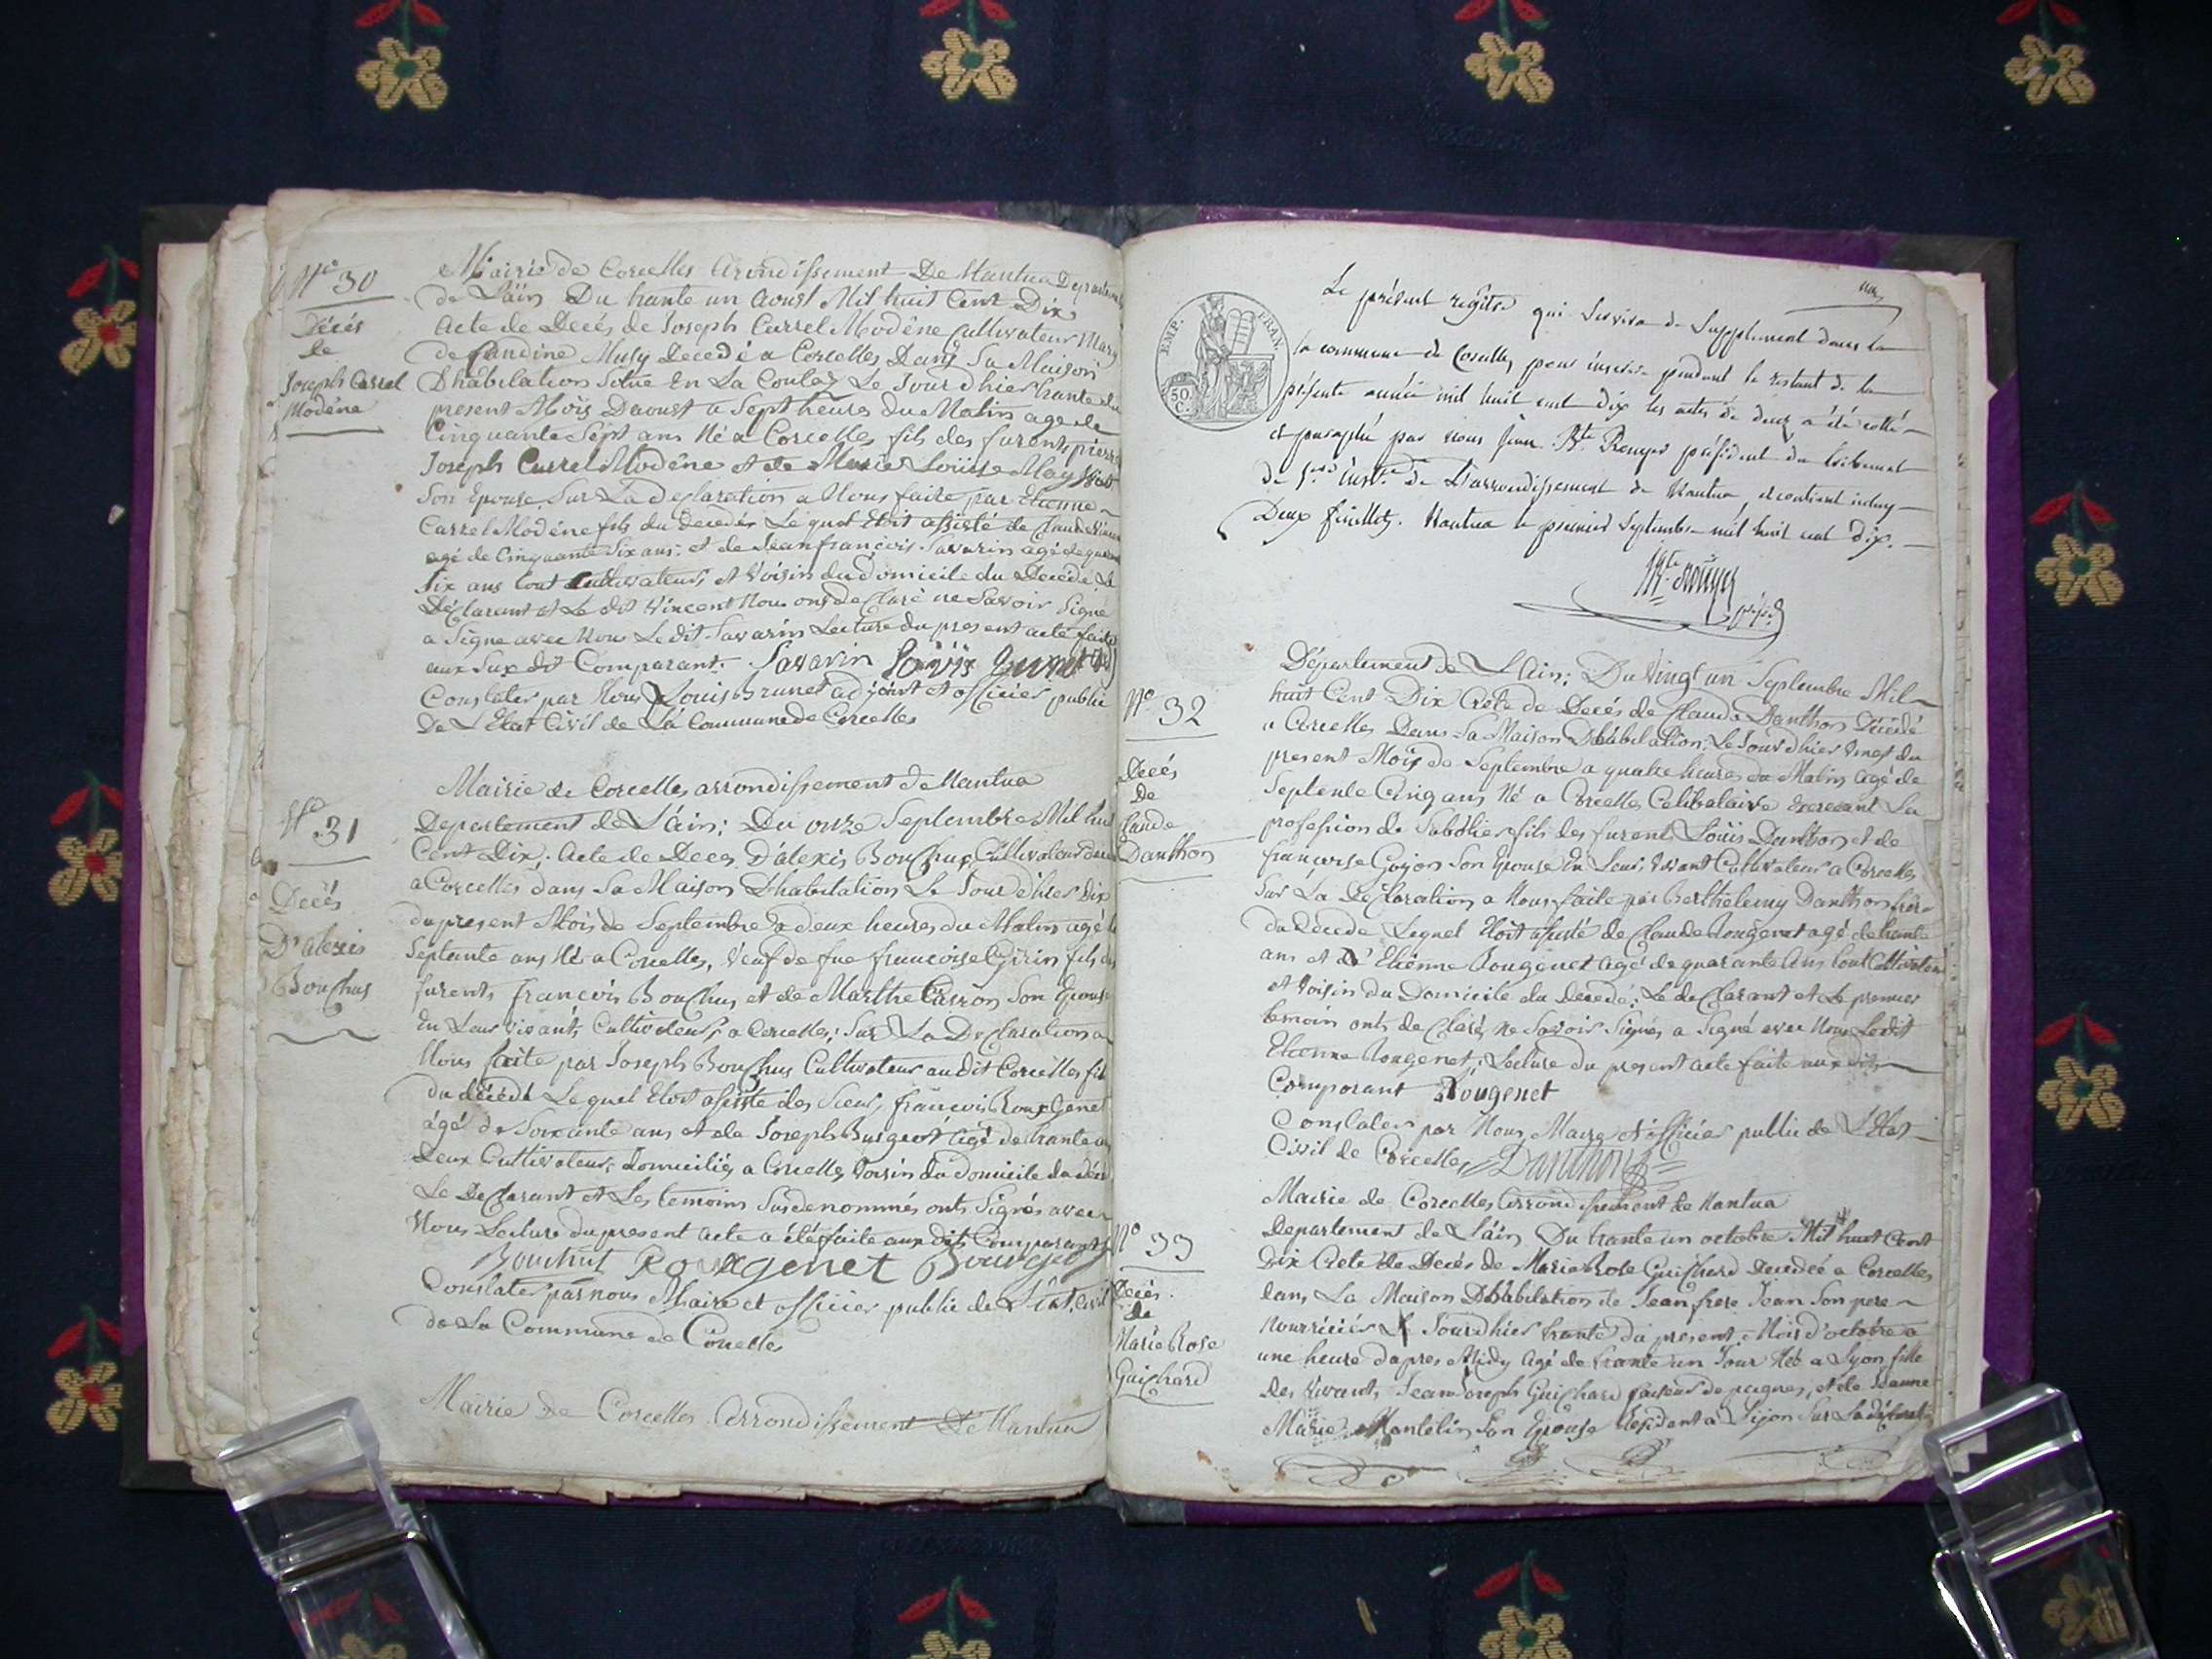 Nº 30
Décés
de
Joseph Carrel
Modéne
Mairie de Corcelles Arondissement De Nantua Departem
de L'äin Du trante un Aoust Mil huit Cent Dix
Acte de Decés de Joseph Carrel Modéne Cultivateur Mary
de Musy Decedé a Corcelles Dans Sa Maison
Dhabitation Le Jour dhier trante du
present Mois Daoust a Sept heures du Matin agé de
Cinquante Sept ans Né a Corcelles fils des furents pierre
Joseph Carrel Modéne et de Marie Loüise
Son Epouse Sur La declaration a Nous faite par Etienne
Carrel Modéne fils du decedés Le quel Etoit assisté de Claude Vincent
agé de Cinquante Six ans et de Jean françois Savarin agé de quarante
Six ans tout Cultivateurs et Voisin du domicile du Decédé Le
Déclarant et Le dit Vincent Nous ons de Claré ne Savoir Signé
a Signe avec Nous Le dit Savarin Lecture du present acte faite
aux Sux dit Comparant. Savarin Louis Brunet
Constater par Nous Louis Brunet adjoint et officier public
De L'Etat Civil de La Commune de Corcelles
Nº 31
Decés
D'alexis
Bouchus
Mairie de Corcelles arrondissement de Nantua
Departement de L'äin; Du onze Septembre Mil huit
Cent Dix; Acte de Deces D'alexis Bouchus Cultivateur
a Corcelles dans Sa Maison Dhabitation Le Jour d'hier Dix
du present Mois de Septembre a deux heures du Matin agé de
Septante ans Né a Corcelles, Veuf de fue francoise Girin fils des
furents françois Bouchus et de Marthe Carron Son Epouse
En Leur vivant, Cultivateurs a Corcelles; Sur La Declaration a
Nous faite par Joseph Bouchus Cultivateur audit Corcelles fils
du décédé Lequel Etoit assisté des Sieurs françois Rougenet
âgé de Soixante ans et de Joseph Burgeot agé de trante
Deux Cultivateurs domiciliés a Corcelles Voisin du domicile du
Le Declarant et Les temoins Susdenommés onts Signés avec
Nous Lecture du present acte a été faite aux dits Comparants
Bouchut Rougenet
Constater par nous Maire et officier public de L'état Civil
de La Commune de Corcelles
Mairie De Corcelles Arrondissement De Nantua
EMP. FRAN.
50 C.
Le présent régitre qui Servira de Supplément dans la
la commune de Corcelles pour inscrire pendant le restant de la
présente année mil huit cent dix les actes de decez a été cotté
et paraphé par nous Jean Bte Rouyer président du tribunal
de 1ere Inst.ce de L'arrondissement de Nantua, et contient
Deux feuillets. Nantua le premier Septembre mil huit cent dix.
Nº 32
Decés
De
Claude
Danthon
Département de L'äin; Du Vingt un Septembre Mil
huit Cent Dix Acte de Decés de Claude Danthon Décédé
a Corcelles Dans Sa Maison Dhabitation; Le Jour dhier Vingt du
present Mois de Septembre a quatre heures du Matin agé de
Septente Cinq ans Né a Corcelles Celibataire Exerceant La
profession de Sabotier fils des furents Loüis Danthon et de
françoise Goyon Son Epouse En Leurs Vivant Cultivateurs a Corcelles
Sur La Declaration a Nous faite par Berthelemy Danthon frére
du Décedé Lequel Etoit assisté de Claude Rougenet agé de trante
ans et d' Etienne Rougenet agé de quarante Ans tout Cultivateurs
et Voisin du Domicile du Decedé; Le declarant et Le premier
temoin onts de Claré, ne Savoir Signés a Signé avec Nous Ledit
Etienne Rougenet; Lecture du present acte faite aux dits
Comparant Rougenet
Constater par Nous Maire et officier public de L'Etat
Civil de Corcelles Danthon
Nº 33
Decés
de
Marie Rose
Guichard
Mairie de Corcelles Arrondissement de Nantua
Departement de L'äin Du trante un octobre Mil huit Cent
Dix Acte de Decés de Marie Rose Guichard Decedée a Corcelles
dans La Maison Dhabitation de Jean frere Jean Son pere
Nourriciés Le Jour dhier trante du present Mois d'octobre a
une heure dapres Midy agé de trante un Jour Née a Lyon fille
des Vivants Jean Joseph Guichard faiseur de peignes, et de Jeanne
Marie Mantelin Son Epouse Resident a Lyon Sur La déclarat